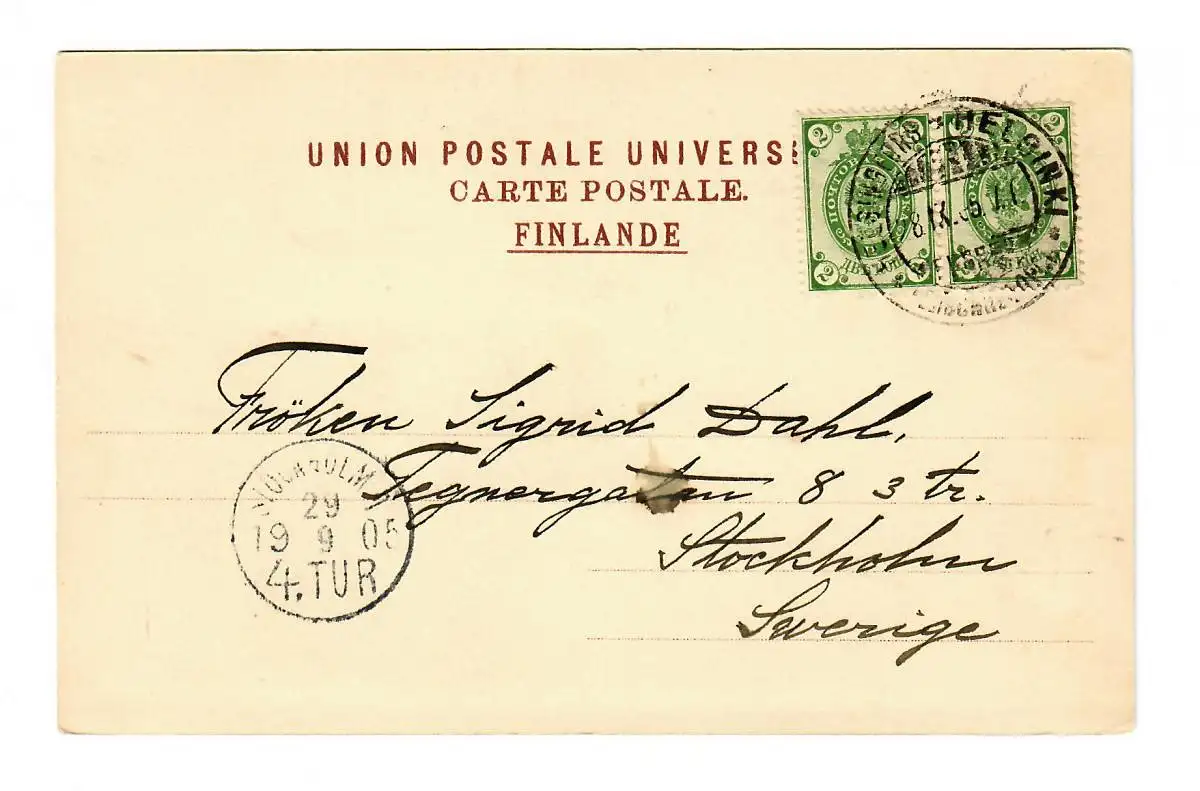 UNION POSTALE UNIVERSE
CARTE POSTALE.
FINLANDE
2 2
ПОЧТОВ
2
HELSINGFORS * HELSINKI *
8.IX.05.
Fröken Sigrid Dahl.
Tegnergatan 8 3 tr.
Stockholm
Sverige
STOCKHOLM
29
19 9 05
4. TUR